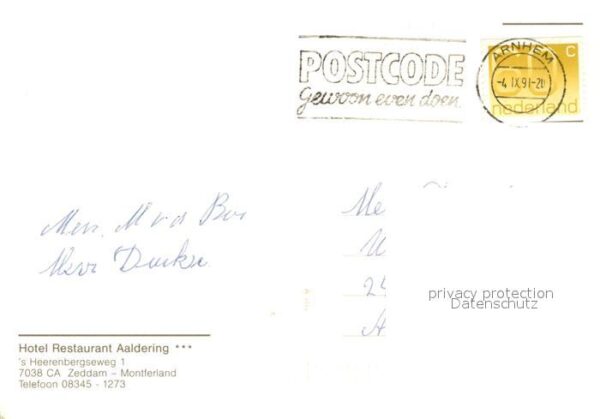 POSTCODE
gewoon even doen
ARNHEM
-4.IX.91-20
C
nederland
Mevr. M v d Bos
Me
24
A
privacy protection
Datenschutz
Hotel Restaurant Aaldering ***
's Heerenbergseweg 1
7038 CA Zeddam - Montferland
Telefoon 08345 - 1273